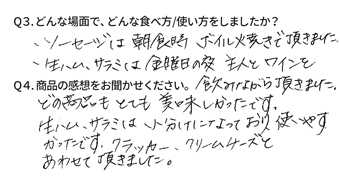 Q3.どんな場面で、どんな食べ方/使い方をしましたか？
・ソーセージは朝食時 ボイル焼きで頂きました
・生ハム、サラミは金曜日の夜 主人とワインを
Q4.商品の感想をお聞かせください。 飲みながら頂きました。
どの商品もとても美味しかったです。
生ハム、サラミは小分けになっており使いやす
かったです。クラッカー、クリームチーズと
あわせて頂きました。